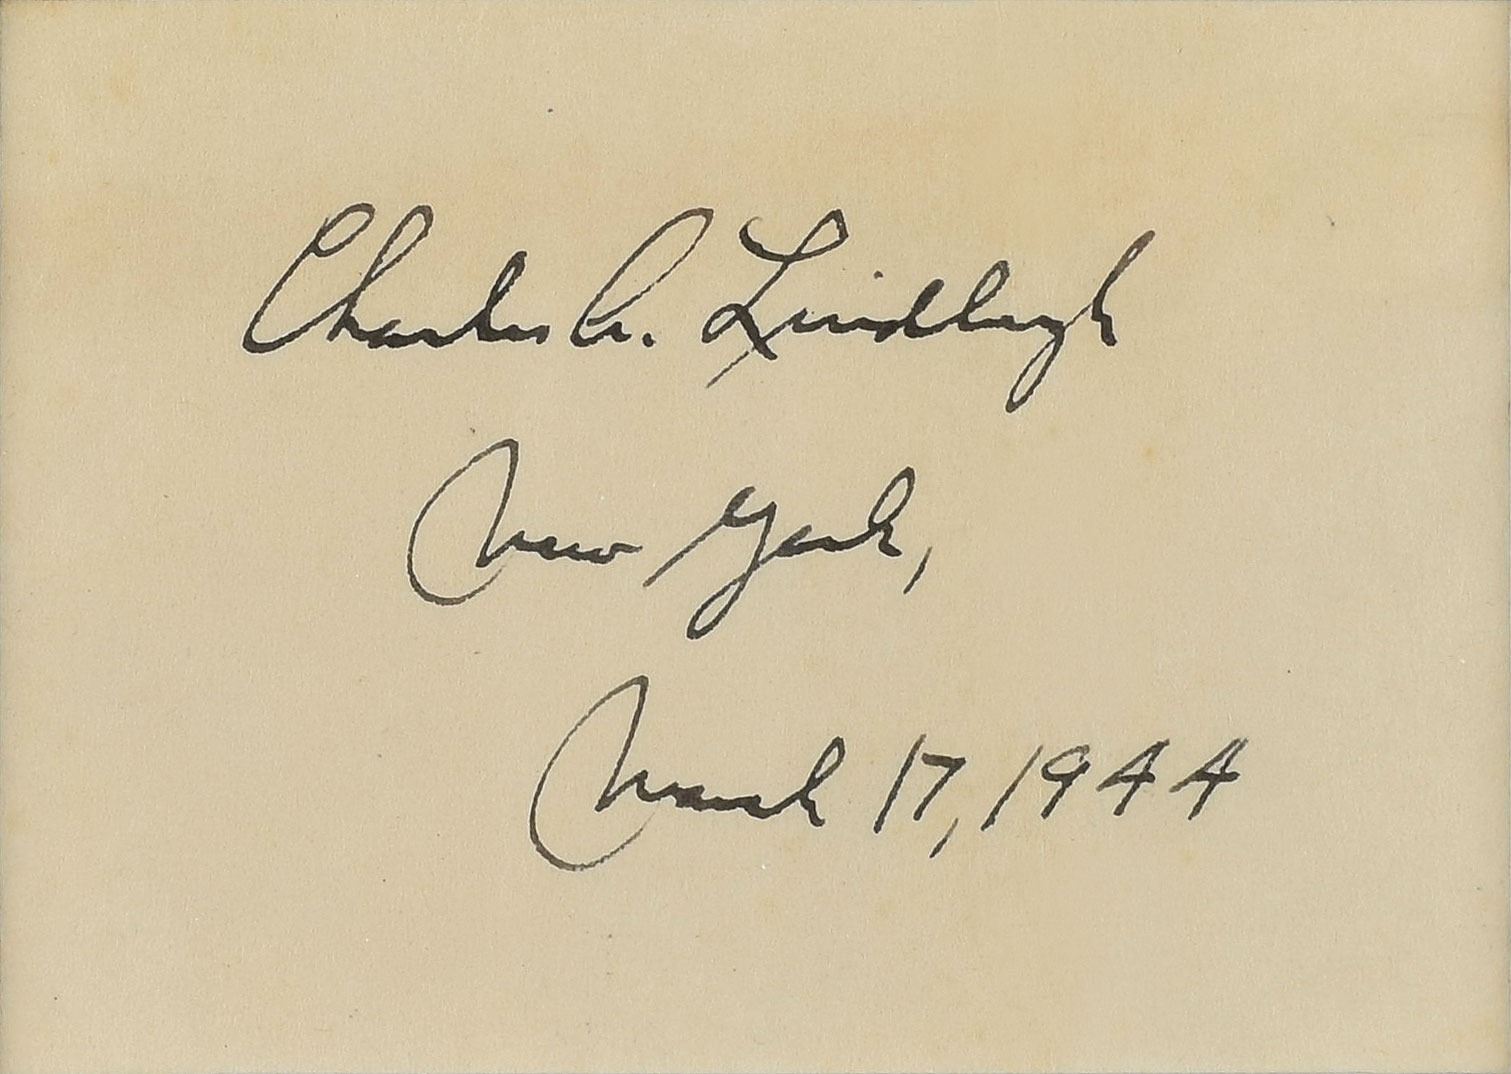 Charles A. Lindbergh
New York,
March 17, 1944